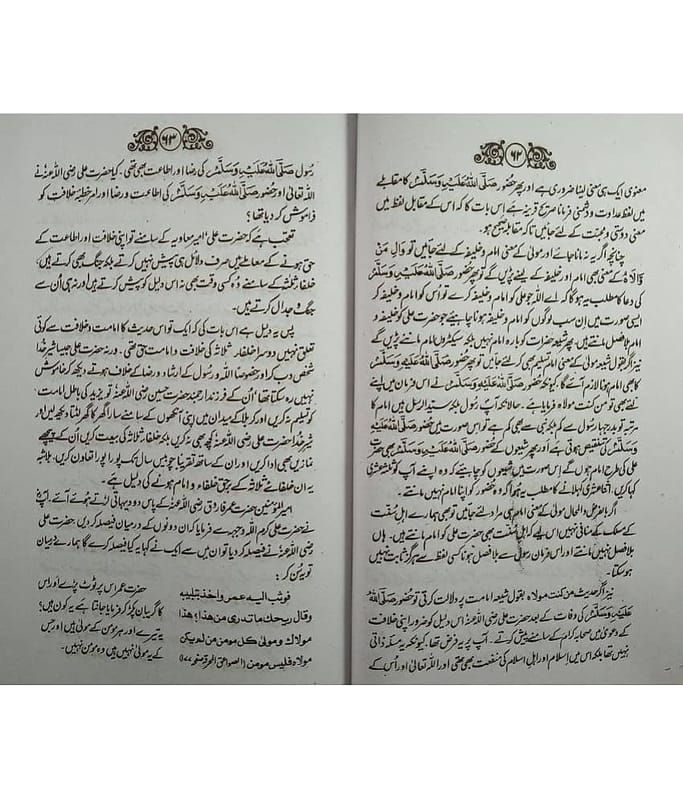 ۶۲
معنوی ایک ہی معنی لینا ضروری ہے اور پھر حضور صَلَّی اللّٰہُ عَلَیْہِ وَسَلَّمَ کا مقابلے
میں لفظ عداوت و دشمنی فرمانا صریح قرینہ ہے اس بات کا کہ اس کے مقابل لفظ میں
معنی دوستی و محبت کے لئے جائیں تاکہ مقابلہ صحیح ہو۔
چنانچہ اگر یہ نہ مانا جائے اور مولیٰ کے معنی امام و خلیفہ کے لئے جائیں تو وَالِ مَنْ
وَّالَاہُ کے معنی بھی امام اور خلیفہ کے لینے پڑیں گے تو پھر حضور صَلَّی اللّٰہُ عَلَیْہِ وَسَلَّمَ
کی دعا کا مطلب یہ ہوگا کہ اے اللہ جو علی کو امام و خلیفہ کرے تو اس کو امام و خلیفہ کر
ایسی صورت میں ان سب لوگوں کو امام و خلیفہ ہونا چاہیئے جو حضرت علی کو خلیفہ و
امام بلا فصل مانتے ہیں۔ پھر شیعہ حضرات کو بارہ امام نہیں بلکہ سینکڑوں امام ماننے پڑیں گے
نیز اگر بقول شیعہ مولیٰ کے معنی امام تسلیم بھی کر لئے جائیں تو پھر حضور صَلَّی اللّٰہُ عَلَیْہِ وَسَلَّمَ
کا بھی امام ہونا لازم آئے گا۔ کیونکہ حضور صَلَّی اللّٰہُ عَلَیْہِ وَسَلَّمَ نے اس فرمان میں اپنے
لئے بھی تو من کنت مولاہ فرمایا ہے۔ حالانکہ آپ رسول بلکہ سید الرسل ہیں امام کا
مرتبہ تو بدرجہا رسول سے کم بلکہ نبی سے بھی کم ہے تو اس صورت میں حضور صَلَّی اللّٰہُ عَلَیْہِ
وَسَلَّمَ کی تنقیص ہوتی ہے اور پھر شیعوں کے حضور صَلَّی اللّٰہُ عَلَیْہِ وَسَلَّمَ بھی حضرت
علی کی طرح امام ہوں گے اس صورت میں شیعوں کو چاہیئے کہ وہ اپنے آپ کو ثلثہ عشری
کہا کریں، اثنا عشری کہلانے کا مطلب یہ ہوا کہ وہ حضور کو اپنا امام نہیں مانتے۔
اگر بالفرض علی و المحال مولیٰ کے معنی امام ہی مراد لئے جائیں تو بھی ہمارے اہل سُنّت
کے مسلک کے منافی نہیں اس لیے کہ اہل سنّت بھی حضرت علی کو امام مانتے ہیں۔ ہاں
بلا فصل نہیں مانتے اور اس فرمان رسول سے بلا فصل ہونا کسی لفظ سے ہرگز ثابت نہیں
ہو سکتا۔
نیز اگر حدیث من کنت مولاہ بقول شیعہ امامت پر دلالت کرتی تو حضور صَلَّی اللّٰہُ
عَلَیْہِ وَسَلَّمَ کی وفات کے بعد حضرت علی رضی اللہ عنہ اس دلیل کو ضرور اپنی خلافت
کے دعویٰ میں صحابہ کرام کے سامنے پیش کرتے۔ آپ پر یہ فرض تھا۔ کیونکہ یہ مسئلہ ذاتی
نہیں تھا بلکہ اس میں اسلام اور اہل اسلام کی منفعت بھی تھی اور اللہ تعالیٰ اور اُس کے
۶۳
رسول صَلَّی اللّٰہُ عَلَیْہِ وَسَلَّمَ کی رضا اور اطاعت بھی تھی۔ کیا حضرت علی رضی اللہ عنہ نے
اللہ تعالیٰ اور حضور صَلَّی اللّٰہُ عَلَیْہِ وَسَلَّمَ کی اطاعت و رضا اور امر حطیئہ خلافت کو
فراموش کر دیا تھا؟
تعجب ہے کہ حضرت علی، امیر معاویہ کے سامنے تو اپنی خلافت اور اطاعت کے
حق ہونے کے معاملے میں صرف دلائل ہی پیش نہیں کرتے بلکہ جنگ بھی کرتے ہیں،
خلفاء ثلثہ کے سامنے وہ کسی وقت بھی نہ اس دلیل کو پیش کرتے ہیں اور نہ ہی اُن سے
جنگ و جدال کرتے ہیں۔
پس یہ دلیل ہے اس بات کی کہ ایک تو اس حدیث کا امامت و خلافت سے کوئی
تعلق نہیں دوسرا خلفاء ثلاثہ کی خلافت و امامت حق تھی۔ ورنہ حضرت علی جیسا شیر خدا
شخص دب کر اور خصوصاً اللہ و رسول کے ارشاد و رضا کے خلاف ہوتے دیکھ کر خاموش
نہیں رہ سکتا تھا؛ اُن کے فرزند ارجمند حسین رضی اللہ عنہ تو یزید کی باطل امامت
کو تسلیم نہ کریں اور کربلا کے میدان میں اپنی آنکھوں کے سامنے سارا گھر کا گھر لٹتا دیکھ لیں اور
شیر خدا حضرت علی رضی اللہ عنہ کچھ بھی نہ کریں بلکہ خلفاء ثلاثہ کی بیعت کریں اُن کے پیچھے
نمازیں بھی ادا کریں اور ان کے ساتھ تقریباً چوبیس سال تک پورا پورا تعاون کریں، بلاشبہ
یہ ان خلفائے ثلاثہ کے برحق خلفاء و امام ہونے کی دلیل ہے۔
امیر المؤمنین حضرت عمر فاروق رضی اللہ عنہ کے پاس دو دیہاتی لڑتے ہوئے آئے۔ آپ
نے حضرت علی کرم اللہ وجہہ سے فرمایا کہ ان دونوں کے درمیان فیصلہ کر دیں حضرت علی
رضی اللہ عنہ نے فیصلہ کر دیا تو ان میں سے ایک نے کہا یہ کیا فیصلہ کرے گا ہمارے درمیان
تو یہ سُن کر:
فوثب الیہ عمر واخذ بتلبیبہ
وقال ویحک ما تدری من ھذا؛ ھذا
مولاک و مولیٰ کل مومن من لم یکن
مولاہ فلیس مومن (الصواعق المحرقہ صفحہ ۱۷۷)
حضرت عمر اس پر ٹوٹ پڑے اور اس
کا گریبان پکڑ کر فرمایا جانتا ہے یہ کون ہیں؟
یہ تیرے اور ہر مومن کے مولیٰ ہیں اور جس
کے یہ مولیٰ نہیں ہیں وہ مومن نہیں۔